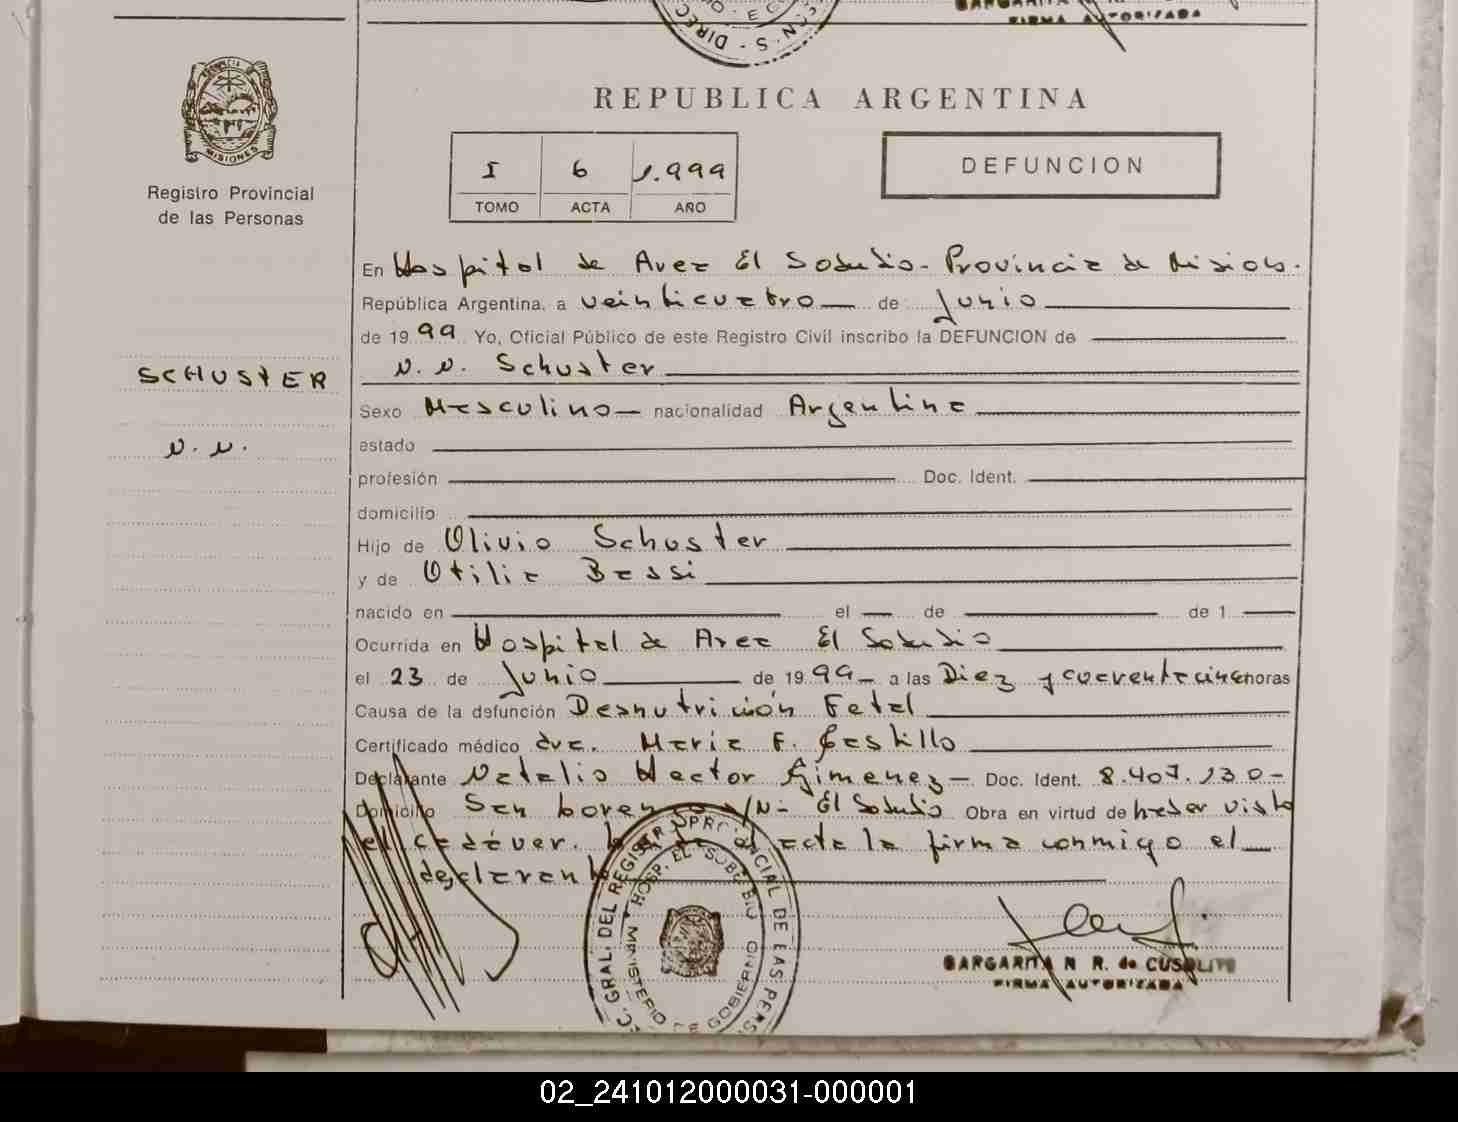 REPUBLICA ARGENTINA
MISIONES
Registro Provincial
de las Personas
I 6 1.999
TOMO ACTA AÑO
DEFUNCION
En Hospital de Area El Soberbio - Provincia de Misiones.
República Argentina, a veinticuatro de Junio
de 1999 Yo, Oficial Público de este Registro Civil inscribo la DEFUNCION de
N. N. Schuster
SCHUSTER
N. N.
Sexo Masculino nacionalidad Argentina
estado
profesión Doc. Ident.
domicilio
Hijo de Olivio Schuster
y de Otilia Bassi
nacido en el de de 1
Ocurrida en Hospital de Area El Soberbio
el 23 de Junio de 1999 a las Diez y horas
Causa de la defunción Desnutrición Fetal
Certificado médico dra. Maria F. Castillo
Declarante Natalio Hector Gimenez - Doc. Ident. 8.407.130-
Domicilio San S/N - El Soberbio Obra en virtud de haber visto
el cadáver. el acta la firma conmigo el
declarante
GRAL. DEL REGISTR PROVINCIAL DE LAS PERS
HOSP. EL SOBERBIO
MINISTERIO DE GOBIERNO
MARGARITA N R. de
FIRMA AUTORIZADA
02_241012000031-000001